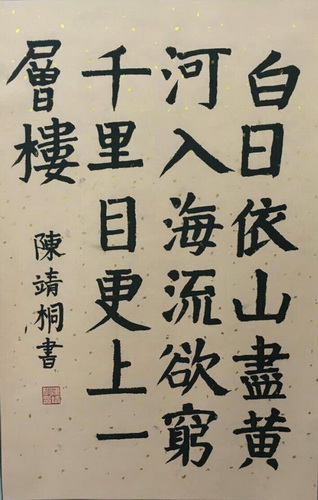 白日依山盡黃
河入海流欲窮
千里目更上一
層樓
陳靖桐書